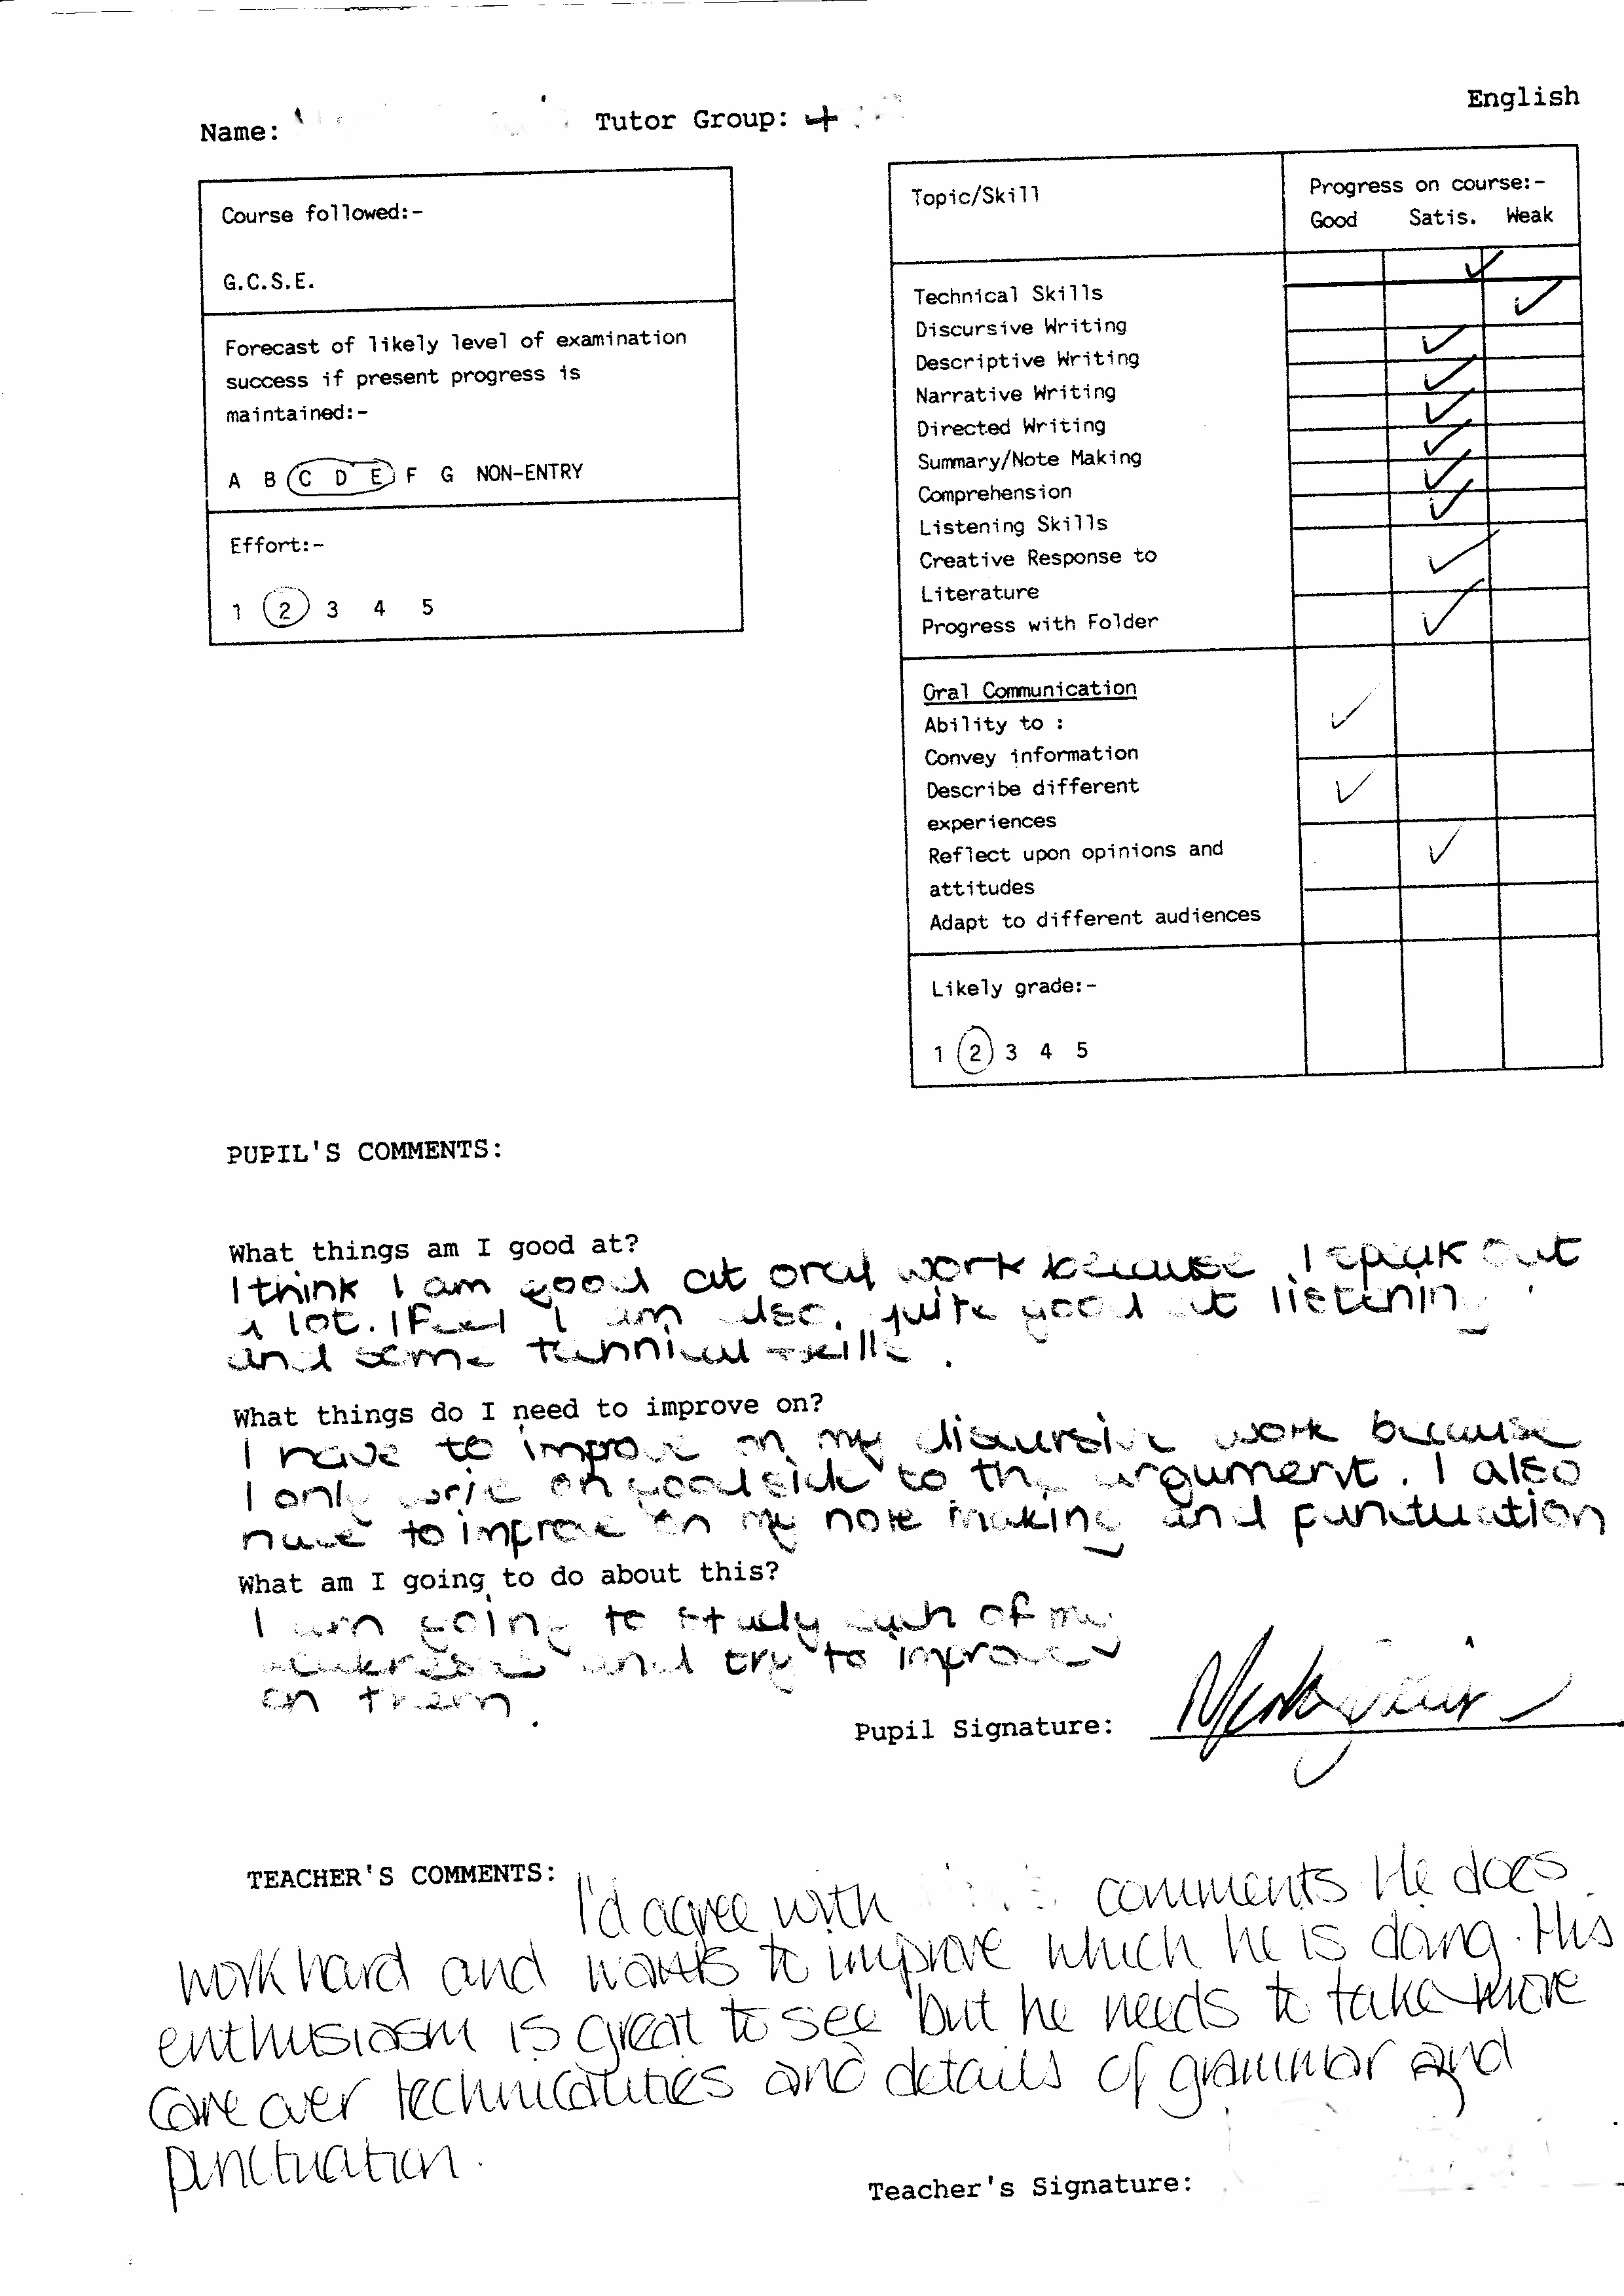 English
Name:
Tutor Group: 4
Course followed:-
G.C.S.E.
Forecast of likely level of examination
success if present progress is
maintained:-
A B C D E F G NON-ENTRY
Effort:-
1 2 3 4 5
Topic/Skill
Progress on course:-
Good Satis. Weak
Technical Skills
Discursive Writing
Descriptive Writing
Narrative Writing
Directed Writing
Summary/Note Making
Comprehension
Listening Skills
Creative Response to
Literature
Progress with Folder
Oral Communication
Ability to :
Convey information
Describe different
experiences
Reflect upon opinions and
attitudes
Adapt to different audiences
Likely grade:-
1 2 3 4 5
PUPIL'S COMMENTS:
What things am I good at?
I think I am good at oral work because I speak out
a lot. I feel I am also quite good at listening
and some tecnnical skills.
What things do I need to improve on?
I have to improve on my discursive work because
I only write on good side to the argument. I also
have to improve on my note making and punctuation
What am I going to do about this?
I am going to study each of my
and try to improve
on them.
Pupil Signature:
TEACHER'S COMMENTS:
I'd agree with comments He does
work hard and wants to improve which he is doing. His
enthusiasm is great to see but he needs to take more
care over technicalities and details of grammar and
punctuation.
Teacher's Signature: